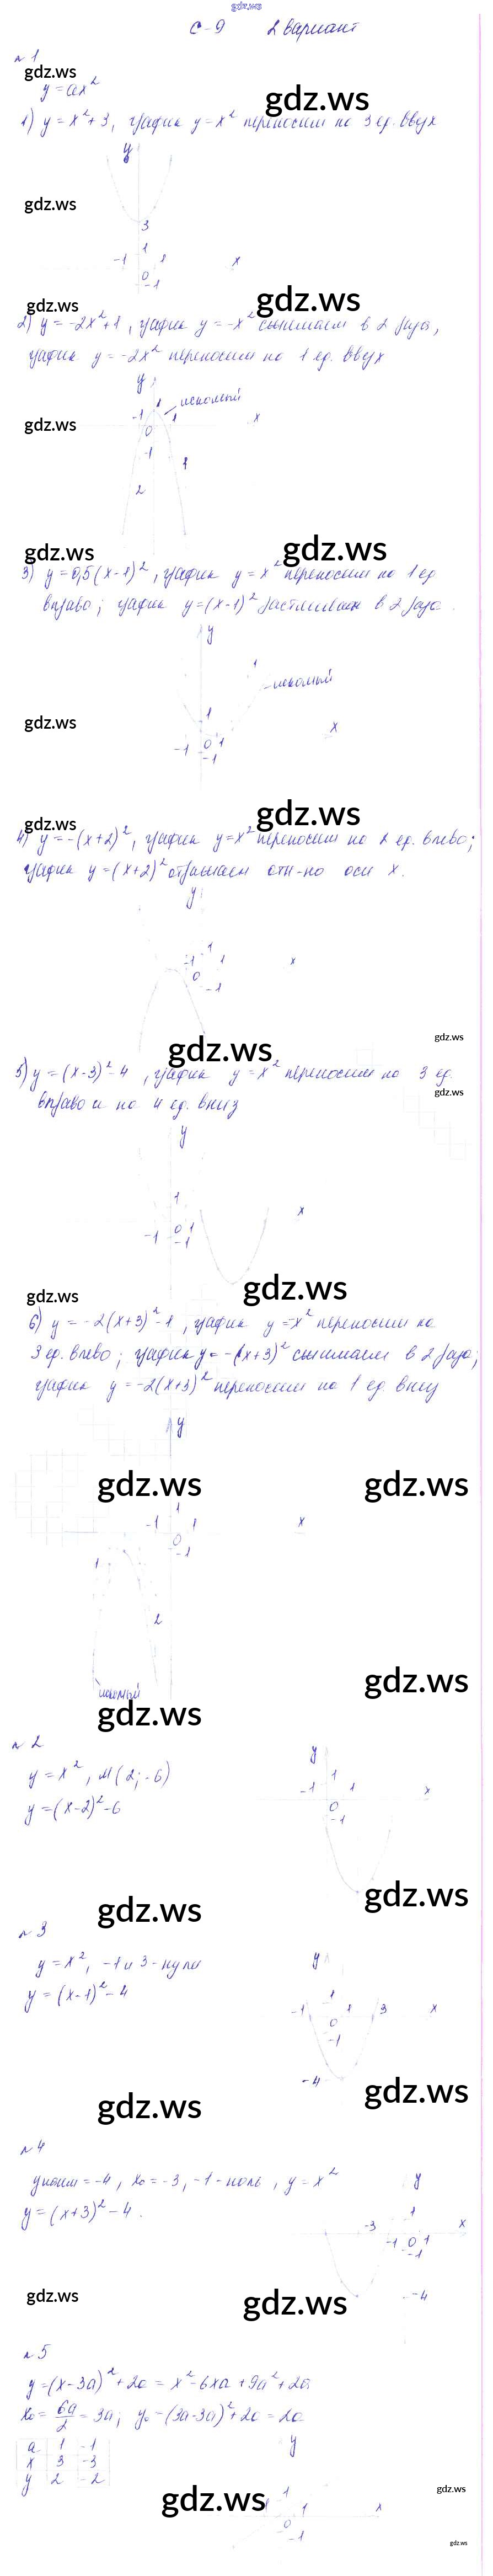 gdz.ws
С-9 2 вариант
№ 1
gdz.ws
y = ax²
gdz.ws
1) y = x² + 3, график y = x² переносим на 3 ед. вверх
y
gdz.ws
3
1
-1 1 x
0
-1
gdz.ws
gdz.ws
2) y = -2x² + 1, график y = -x² сжимаем в 2 раза,
график y = -2x² переносим на 1 ед. вверх
y
искомый
-1 1 x
gdz.ws
0
-1
1
2
gdz.ws
gdz.ws
3) y = 0,5(x-1)², график y = x² переносим на 1 ед
вправо; график y = (x-1)² растягиваем в 2 раза.
y
1
искомый
1
gdz.ws
x
-1 0 1
-1
gdz.ws
gdz.ws
4) y = -(x+2)², график y = x² переносим на 2 ед. влево;
график y = (x+2)² отражаем отн-но оси x.
y
1
-1 1 x
0
-1
gdz.ws
gdz.ws
5) y = (x-3)² - 4, график y = x² переносим на 3 ед.
gdz.ws
вправо и на 4 ед. вниз
y
1
x
-1 0 1
-1
gdz.ws
gdz.ws
6) y = -2(x+3)² - 1, график y = -x² переносим на
3 ед. влево; график y = -(x+3)² сжимаем в 2 раза;
график y = -2(x+3)² переносим на 1 ед. вниз
y
gdz.ws
gdz.ws
1
-1 1 x
0
-1
1
2
gdz.ws
искомый
gdz.ws
№ 2
y = x², M(2; -6)
y = (x-2)² - 6
y
1
-1 1 x
0
-1
gdz.ws
gdz.ws
№ 3
y = x², -1 и 3 - нули
y = (x-1)² - 4
y
1
-1 1 3 x
0
-1
-4
gdz.ws
gdz.ws
№ 4
yнаим = -4, x₀ = -3, -1 - ноль, y = x²
y = (x+3)² - 4.
y
1
-3 x
-1 0 1
-1
-4
gdz.ws
gdz.ws
№ 5
y = (x-3a)² + 2a = x² - 6xa + 9a² + 2a
x₀ = 6a/2 = 3a; y₀ = (3a-3a)² + 2a = 2a
a 1 -1
x 3 -3
y 2 -2
y
1
1 x
0
-1
gdz.ws
gdz.ws
gdz.ws